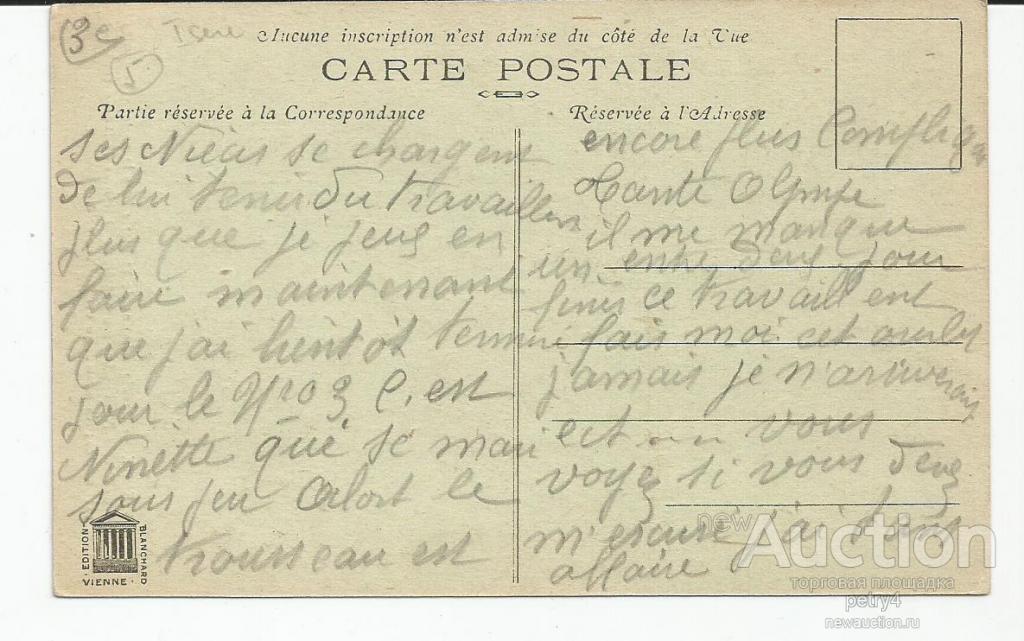 3c
5
Isère
Aucune inscription n'est admise du côté de la Vue
CARTE POSTALE
Partie réservée à la Correspondance
Réservée à l'Adresse
ses Nièces se chargent
de lui tenir du travail
plus que je peus en
faire maintenant
que j'ai bientôt termine
pour le Nro 3 C. est
Ninette que se mari
sous peu alort le
trousseau est
encore plus Compliqu
Tante Olympe
il me manque
un entre deus pour
finir ce travaill ent
fais moi cet
jamais je n'ariverais
ect vous
voyez si vous deves
m'escuse j'ai
affaire
EDITION BLANCHARD
VIENNE
newAuction
торговая площадка
petry4
newauction.ru